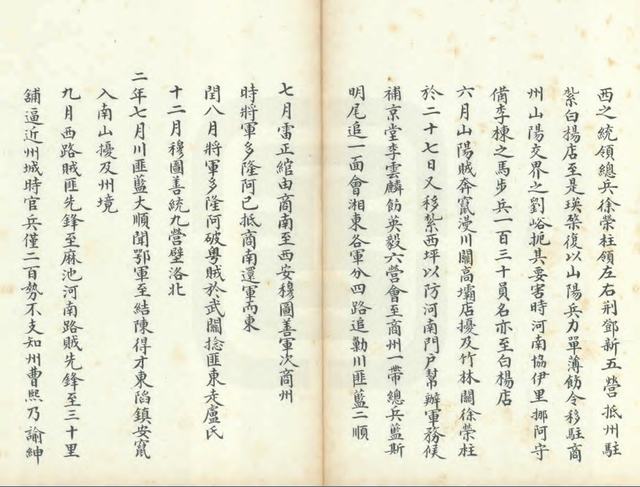 西之統領總兵徐榮柱領左右荊鄧新五營抵州駐
紮白楊店至是瑛棨復以山陽兵力單薄飭令移駐商
州山陽交界之劉峪扼其要害時河南協伊里挪阿守
備李棟之馬步兵一百三十員名亦至白楊店
六月山陽賊奔竄漫川關高壩店擾及竹林關徐榮柱
於二十七日又移紮西坪以防河南門戶幫辦軍務候
補京堂李雲麟飭英毅六營會至商州一帶總兵藍斯
明尾追一面會湘東各軍分四路追勦川匪藍二順
七月雷正綰由商南至西安穆圖善軍次商州
時將軍多隆阿已抵商南還軍而東
閏八月將軍多隆阿破粵賊於武關捻匪東走盧氏
十二月穆圖善統九營壁洛北
二年七月川匪藍大順聞鄂軍至結陳得才東陷鎮安竄
入南山擾及州境
九月西路賊匪先鋒至麻池河南路賊先鋒至三十里
舖逼近州城時官兵僅二百勢不支知州曹熙乃諭紳